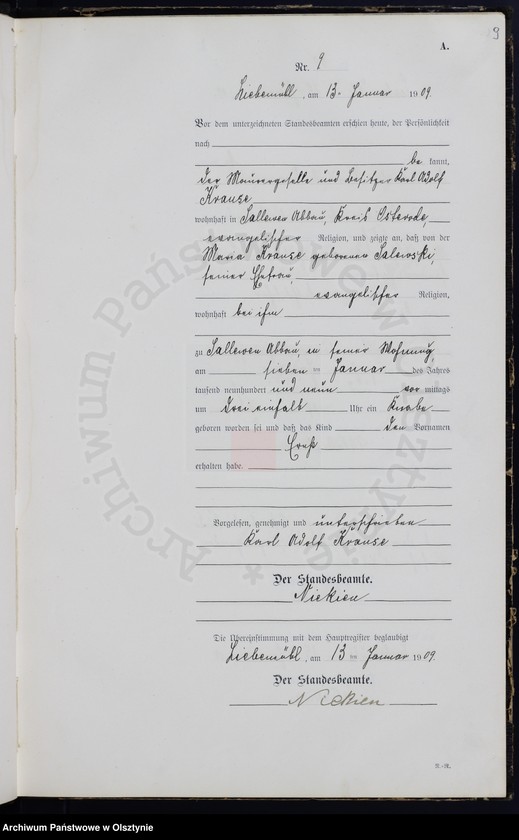 9
A.
Nr. 9
Liebemühl, am 13. Januar 1909.
Vor dem unterzeichneten Standesbeamten erschien heute, der Persönlichkeit
nach
be kannt,
der Maurergeselle und Besitzer Karl Adolf
Krause
wohnhaft in Sallewen Abbau, Kreis Osterode,
evangelischer Religion, und zeigte an, daß von der
Maria Krause geborenen Salewski,
seiner Ehefrau,
evangelischer Religion,
wohnhaft bei ihm
zu Sallewen Abbau, in seiner Wohnung,
am sieben ten Januar des Jahres
tausend neunhundert und neun vor mittags
um drei einhalb Uhr ein Knabe
geboren worden sei und daß das Kind den Vornamen
Ernst
erhalten habe.
Vorgelesen, genehmigt und unterschrieben
Karl Adolf Krause
Der Standesbeamte.
Nickien
Die Übereinstimmung mit dem Hauptregister beglaubigt
Liebemühl, am 13 ten Januar 1909.
Der Standesbeamte.
Nickien
Archiwum Państwowe w Olsztynie
Archiwum Państwowe w Olsztynie